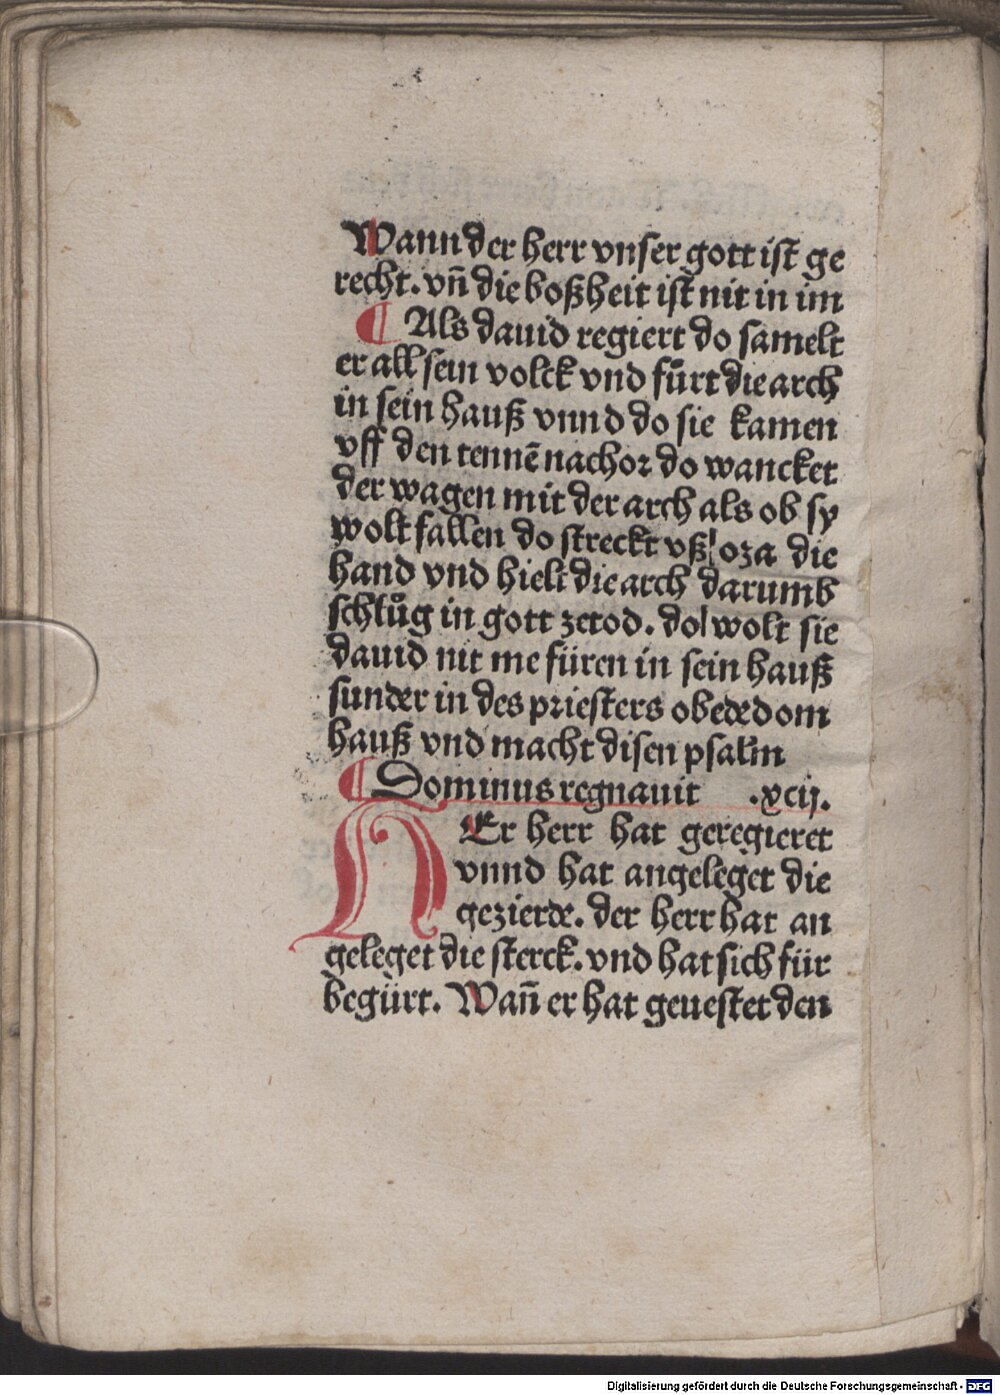 Wann der herr vnser gott ist ge
recht. vn̄ die boßheit ist nit in im
¶ Als dauid regiert do samelt
er all sein volck vnd fůrt die arch
in sein hauß vnnd do sie kamen
vff den tennē nachor do wancket
der wagen mit der arch als ob sy
wolt fallen do streckt vß oza die
hand vnd hielt die arch darumb
schlůg in gott zetod. do wolt sie
dauid nit me füren in sein hauß
sunder in des priesters obededom
hauß vnd macht disen psalm
¶ Dominus regnauit .xcij.
Er herr hat geregieret
vnnd hat angeleget die
gezierde. der herr hat an
geleget die sterck. vnd hat sich für
begürt. Wan̄ er hat geuestet den
Digitalisierung gefördert durch die Deutsche Forschungsgemeinschaft - DFG